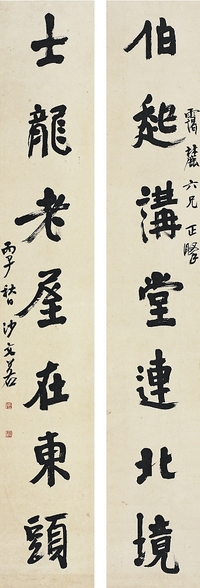 伯起講堂連北境
麓六兄正
士龍老屋在東頭
丙子秋日沙文若